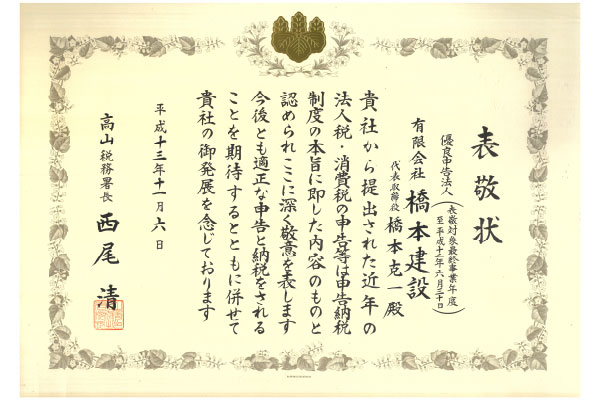 表敬状
優良申告法人
(表敬対象最終事業年度
至平成十三年六月三十日)
有限会社 橋本建設
代表取締役 橋本克一殿
貴社から提出された近年の
法人税・消費税の申告等は申告納税
制度の本旨に即した内容のものと
認められここに深く敬意を表します
今後とも適正な申告と納税をされる
ことを期待するとともに併せて
貴社の御発展を念じております
平成十三年十一月六日
高山税務署長 西尾 清